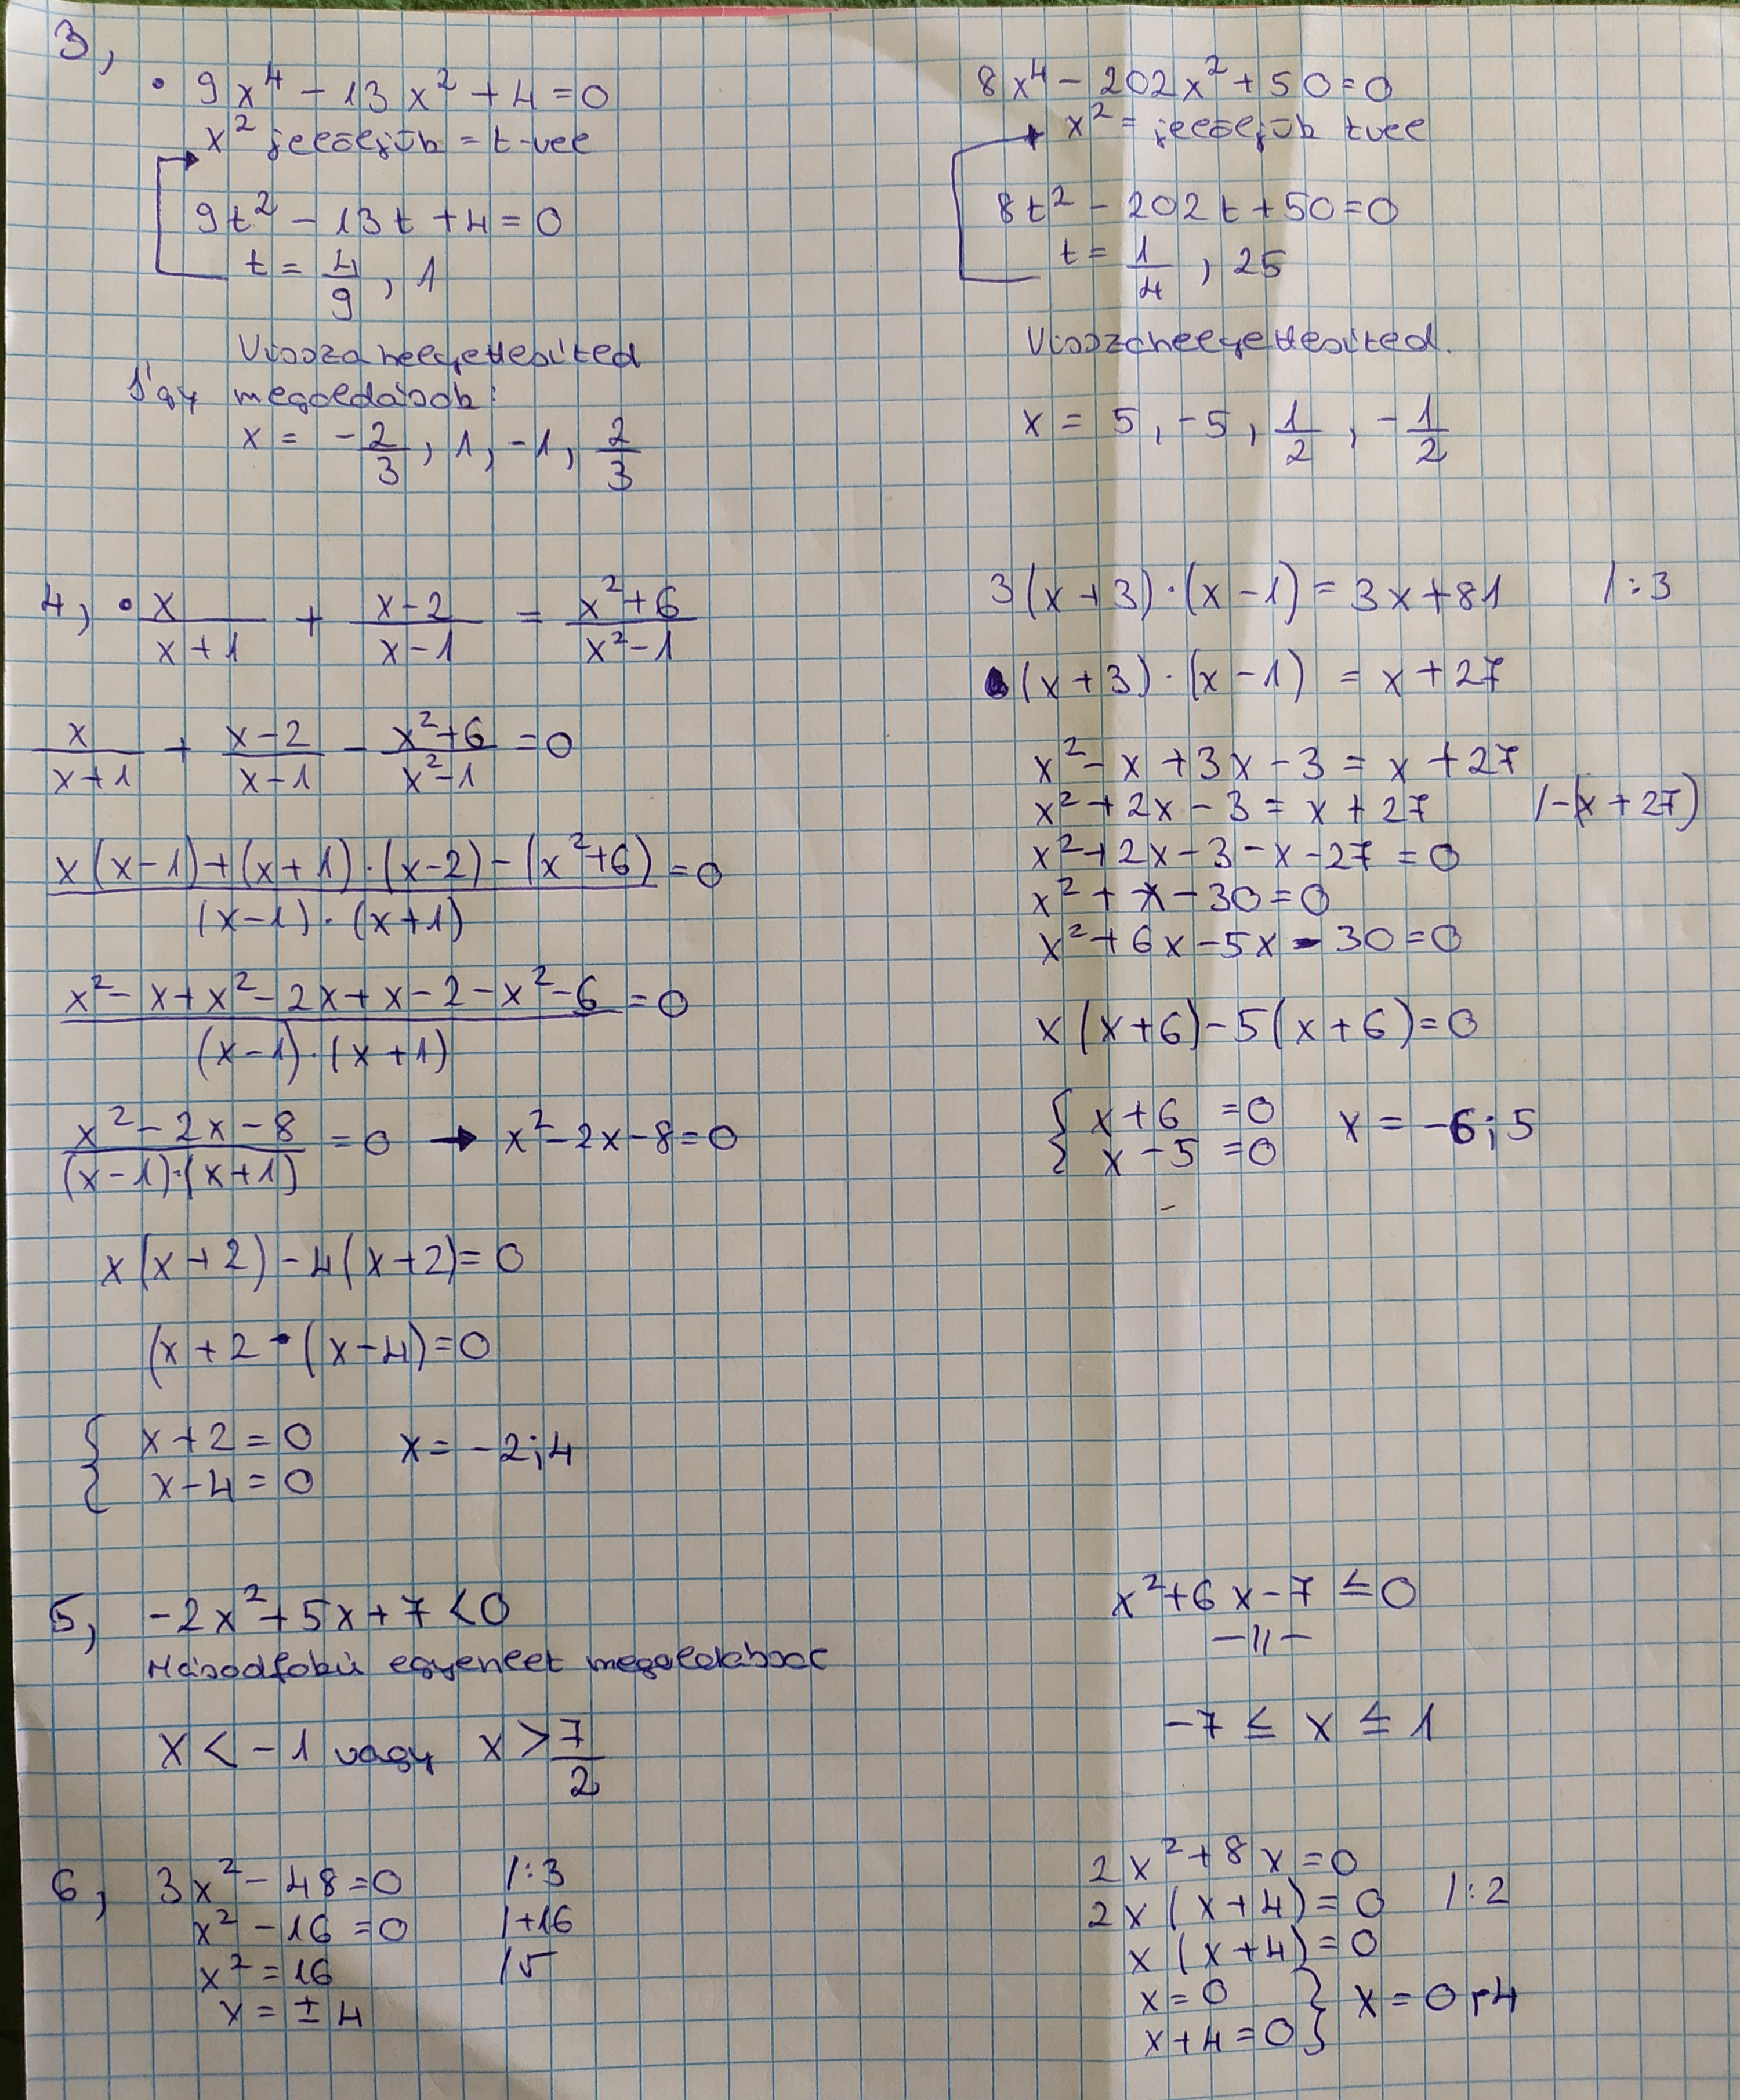 3,
• 9x⁴ - 13x² + 4 = 0
x² jelöljük = t-vel
9t² - 13t + 4 = 0
t = 4/9, 1
Visszahelyettesíted
Így megoldások:
x = -2/3, 1, -1, 2/3
8x⁴ - 202x² + 50 = 0
x² = jelöljük tvel
8t² - 202t + 50 = 0
t = 1/4, 25
Visszahelyettesíted.
x = 5, -5, 1/2, -1/2
4, • x/(x+1) + (x-2)/(x-1) = (x²+6)/(x²-1)
x/(x+1) + (x-2)/(x-1) - (x²+6)/(x²-1) = 0
(x(x-1)+(x+1)·(x-2)-(x²+6))/((x-1)·(x+1)) = 0
(x²-x+x²-2x+x-2-x²-6)/((x-1)·(x+1)) = 0
(x²-2x-8)/((x-1)·(x+1)) = 0 → x²-2x-8=0
x(x+2)-4(x+2)=0
(x+2·(x-4)=0
{ x+2=0 x=-2;4
x-4=0
3(x+3)·(x-1)=3x+81 /:3
(x+3)·(x-1) = x+27
x²-x+3x-3=x+27
x²+2x-3=x+27 /-(x+27)
x²+2x-3-x-27=0
x²+x-30=0
x²+6x-5x-30=0
x(x+6)-5(x+6)=0
{ x+6=0 x=-6;5
x-5=0
5, -2x²+5x+7<0
Másodfokú egyenlet megoldással
x<-1 vagy x>7/2
x²+6x-7≤0
-11-
-7≤x≤1
6, 3x²-48=0 /:3
x²-16=0 /+16
x²=16 /√
x=±4
2x²+8x=0
2x(x+4)=0 /:2
x(x+4)=0
x=0 } x=0;-4
x+4=0